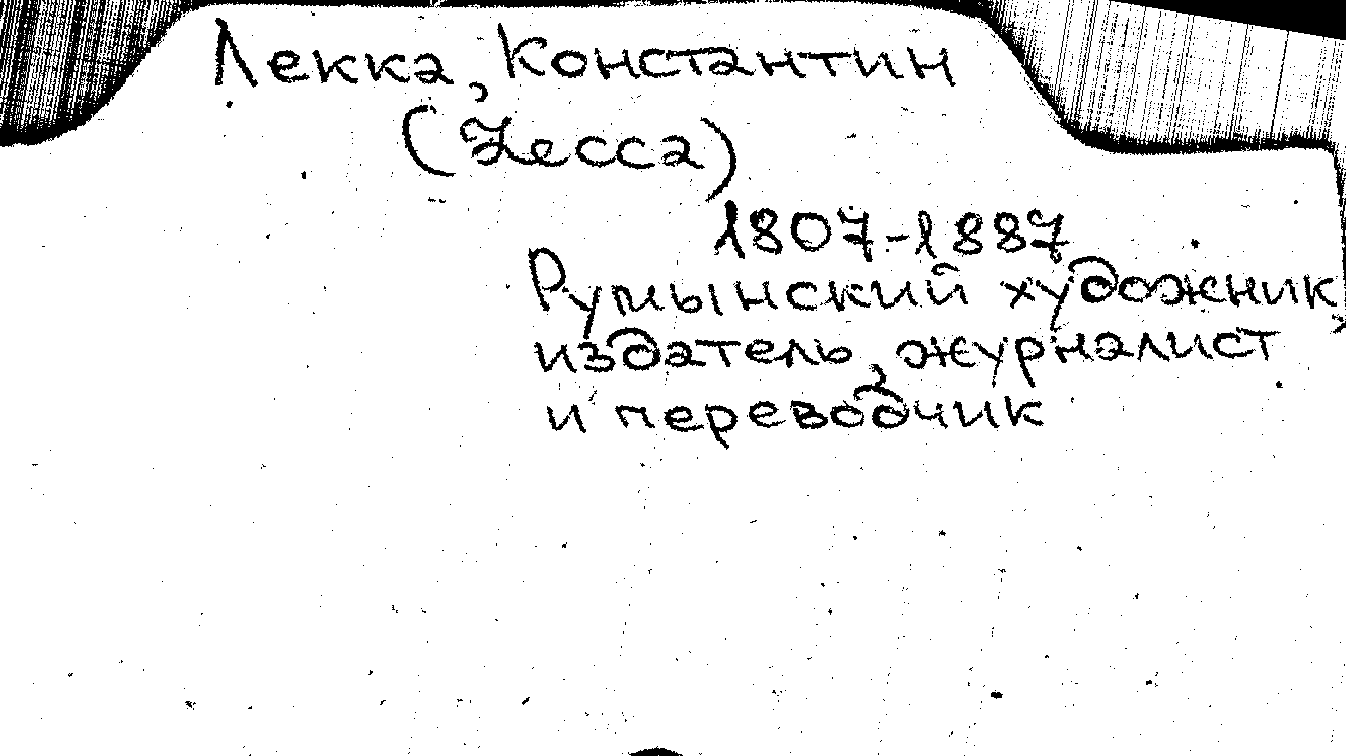 Лекка, Константин
(Lecca)
1807-1887
Румынский художник,
издатель, журналист
и переводчик